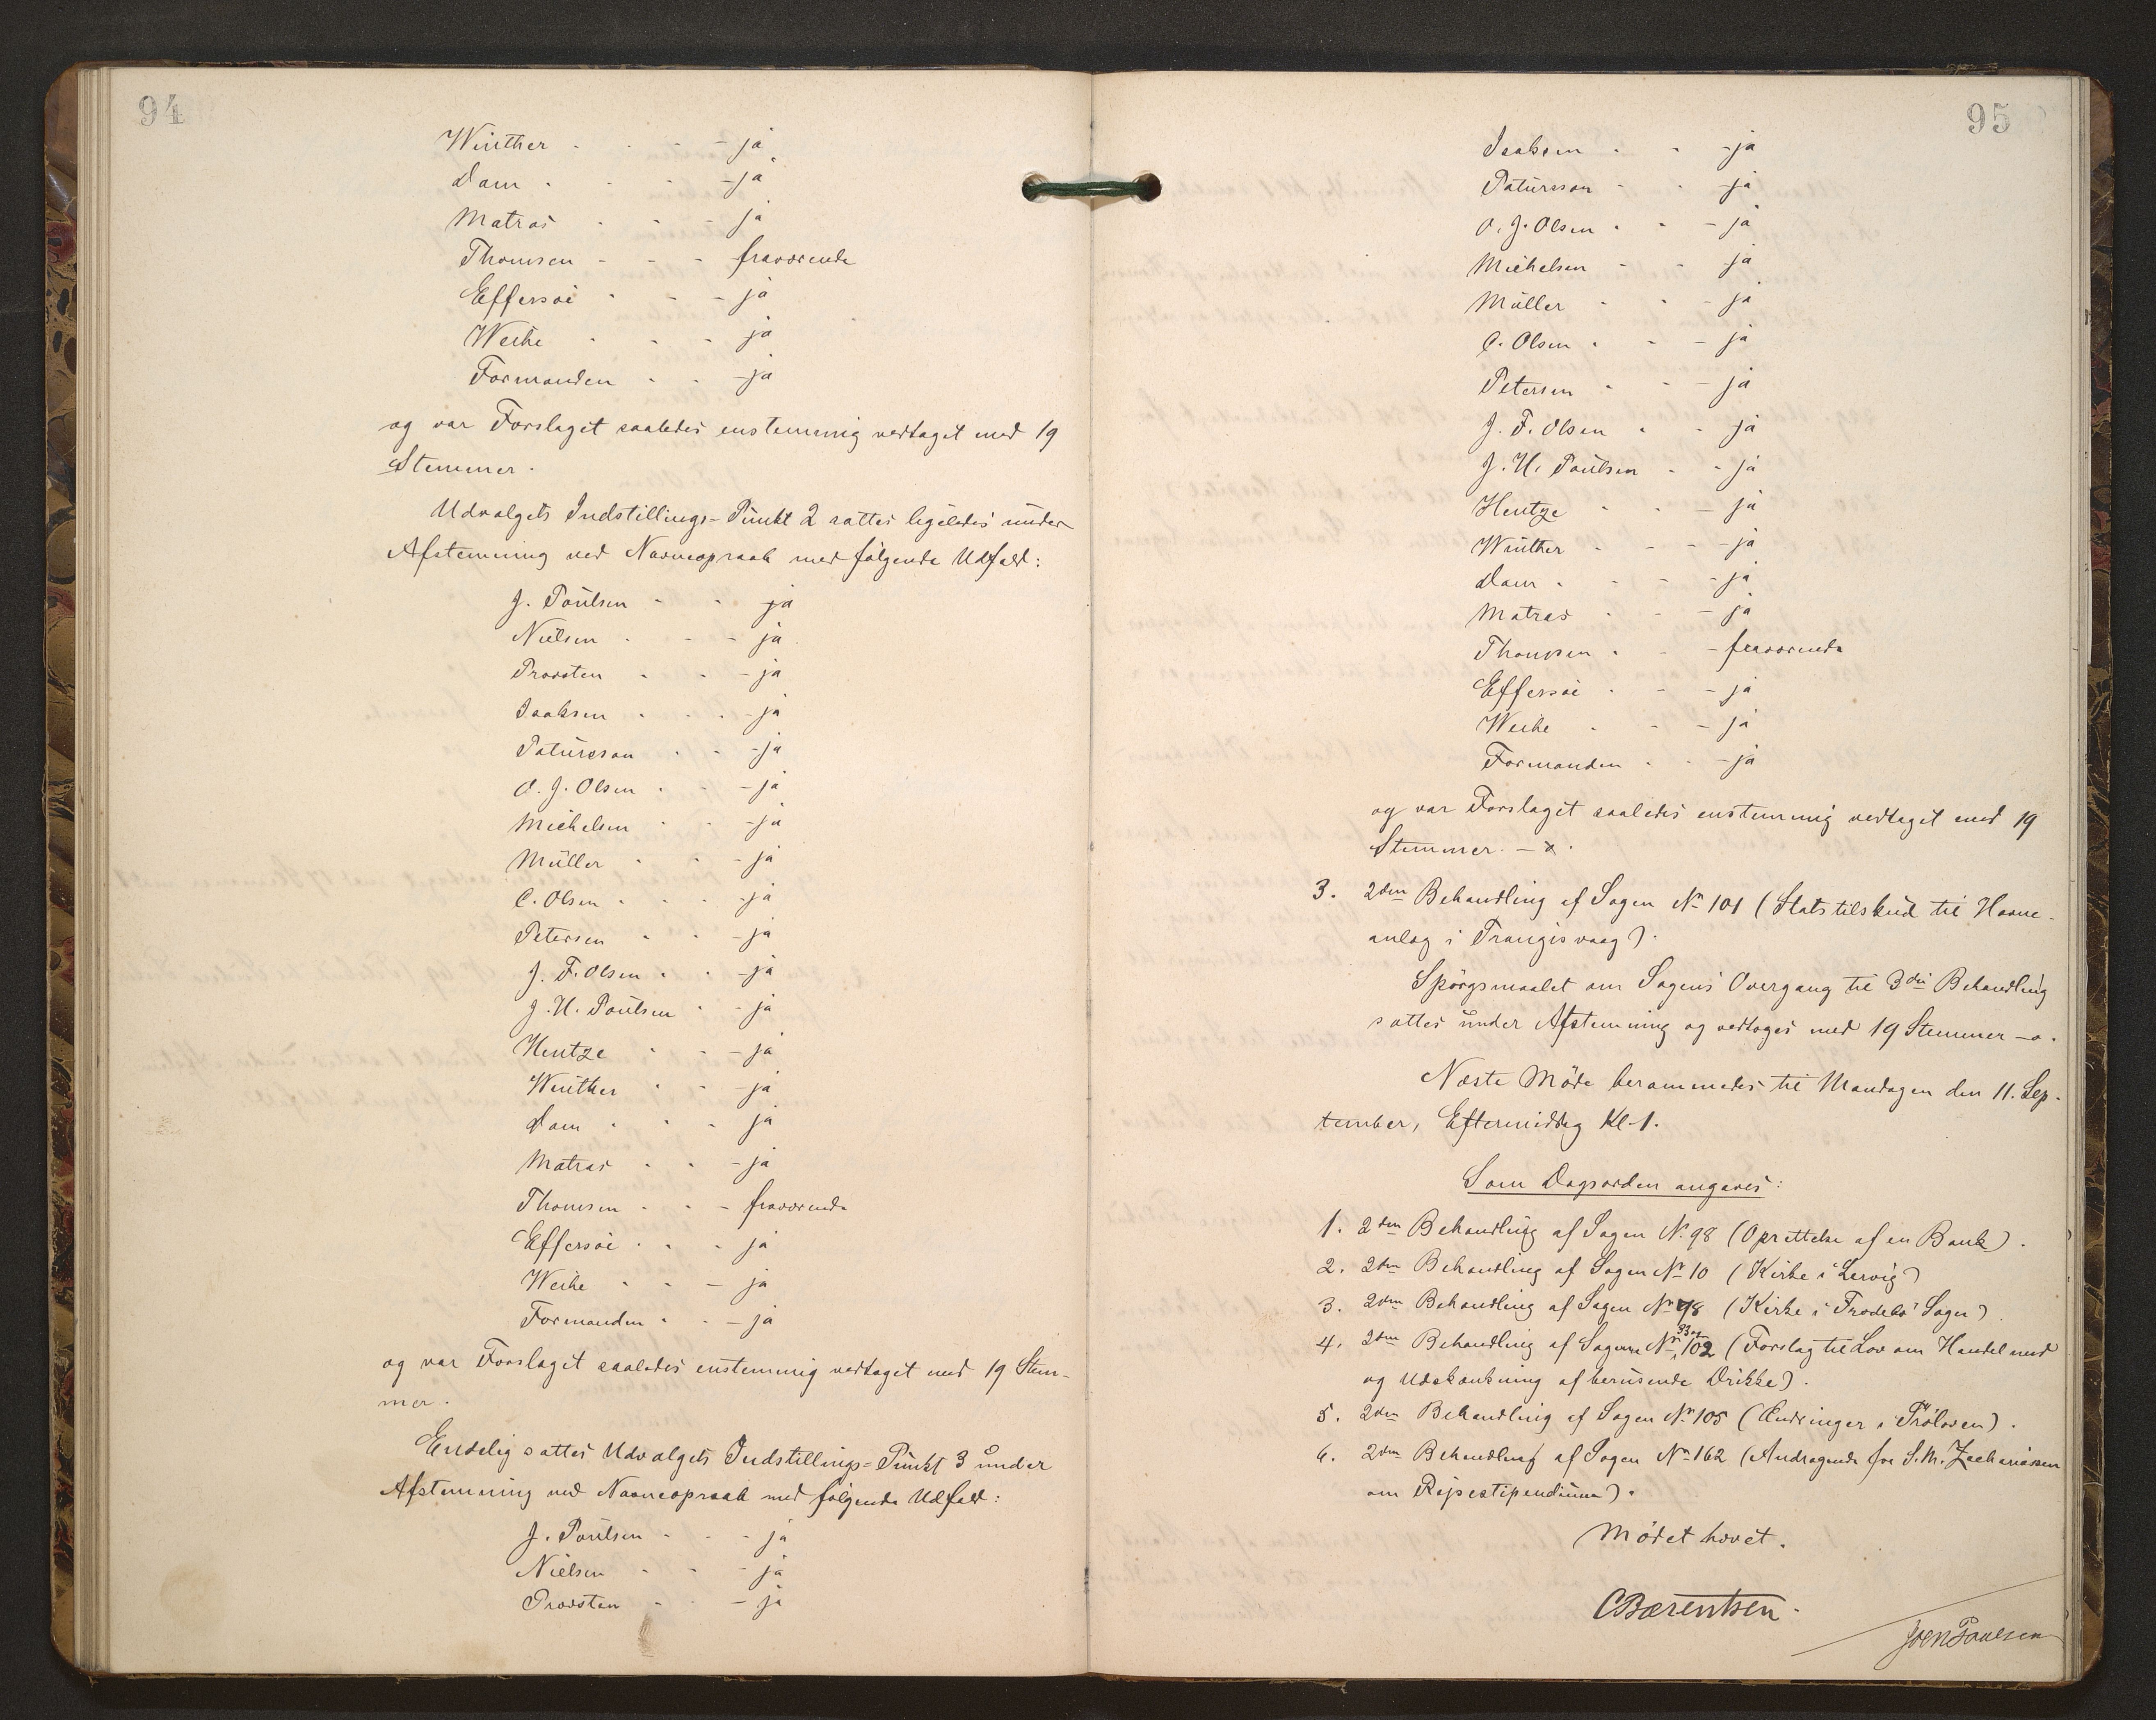 94
Winther - - - ja
Dam - - - ja
Matras - - - ja
Thomsen - - - fraværende
Effersøe - - - ja
Weihe - - - ja
Formanden - - - ja
og var Forslaget saaledes enstemmig vedtaget med 19
Stemmer.
Udvalgets Indstillings-Punkt 2 sattes ligeledes under
Afstemning ved Navneopraab med følgende Udfald:
J. Poulsen - - ja
Nielsen - - - ja
Provsten - - - ja
Isaksen - - - ja
Patursson - - - ja
O. J. Olsen - - - ja
Michelsen - - ja
Müller - - - ja
C. Olsen - - - ja
Petersen - - - ja
J. F. Olsen - - - ja
J. H. Poulsen - - ja
Hentze - - - ja
Winther - - - ja
Dam - - - ja
Matras - - - ja
Thomsen - - - fraværende
Effersøe - - - ja
Weihe - - - ja
Formanden - - - ja
og var Forslaget saaledes enstemmig vedtaget med 19 Stem-
mer.
Endelig sattes Udvalgets Indstillings-Punkt 3 under
Afstemning ved Navneopraab med følgende Udfald:
J. Poulsen - - - ja
Nielsen - - - ja
Provsten - - - ja
95
Isaksen - - - ja
Patursson - - ja
O. J. Olsen - - - ja
Michelsen - - ja
Müller - - - ja
C. Olsen - - - ja
Petersen - - - ja
J. F. Olsen - - ja
J. H. Poulsen - - ja
Hentze - - - ja
Winther - - - - ja
Dam - - - - ja
Matras - - - ja
Thomsen - - - fraværende
Effersøe - - - ja
Weihe - - - ja
Formanden - - - ja
og var Forslaget saaledes enstemmig vedtaget med 19
Stemmer. —
3. 2den Behandling af Sagen Nr 101 (Statstilskud til Havne-
anlæg i Trangisvaag).
Spørgsmaalet om Sagens Overgang til 3die Behandling
sattes under Afstemning og vedtoges med 19 Stemmer - o.
Næste Møde berammedes til Mandagen den 11. Sep-
tember, Eftermiddag Kl. 1.
Som Dagsorden angaves:
1. 2den Behandling af Sagen Nr 98 (Oprettelse af en Bank).
2. 2den Behandling af Sagen Nr 10 (Kirke i Lervig)
3. 2den Behandling af Sagen Nr 48 (Kirke i Frodebø Sogn)
4. 2den Behandling af Sagerne Nr 33 og 102 (Forslag til Lov om Handel med
og Udskænkning af berusende Drikke).
5. 2den Behandling af Sagen Nr 105 (Ændringer i Prøloven).
6. 2den Behandling af Sagen Nr 162 (Andragende fra S. M. Zachariasen
om Rejsestipendium).
Mødet hævet.
C Bærentsen.
Joen Poulsen